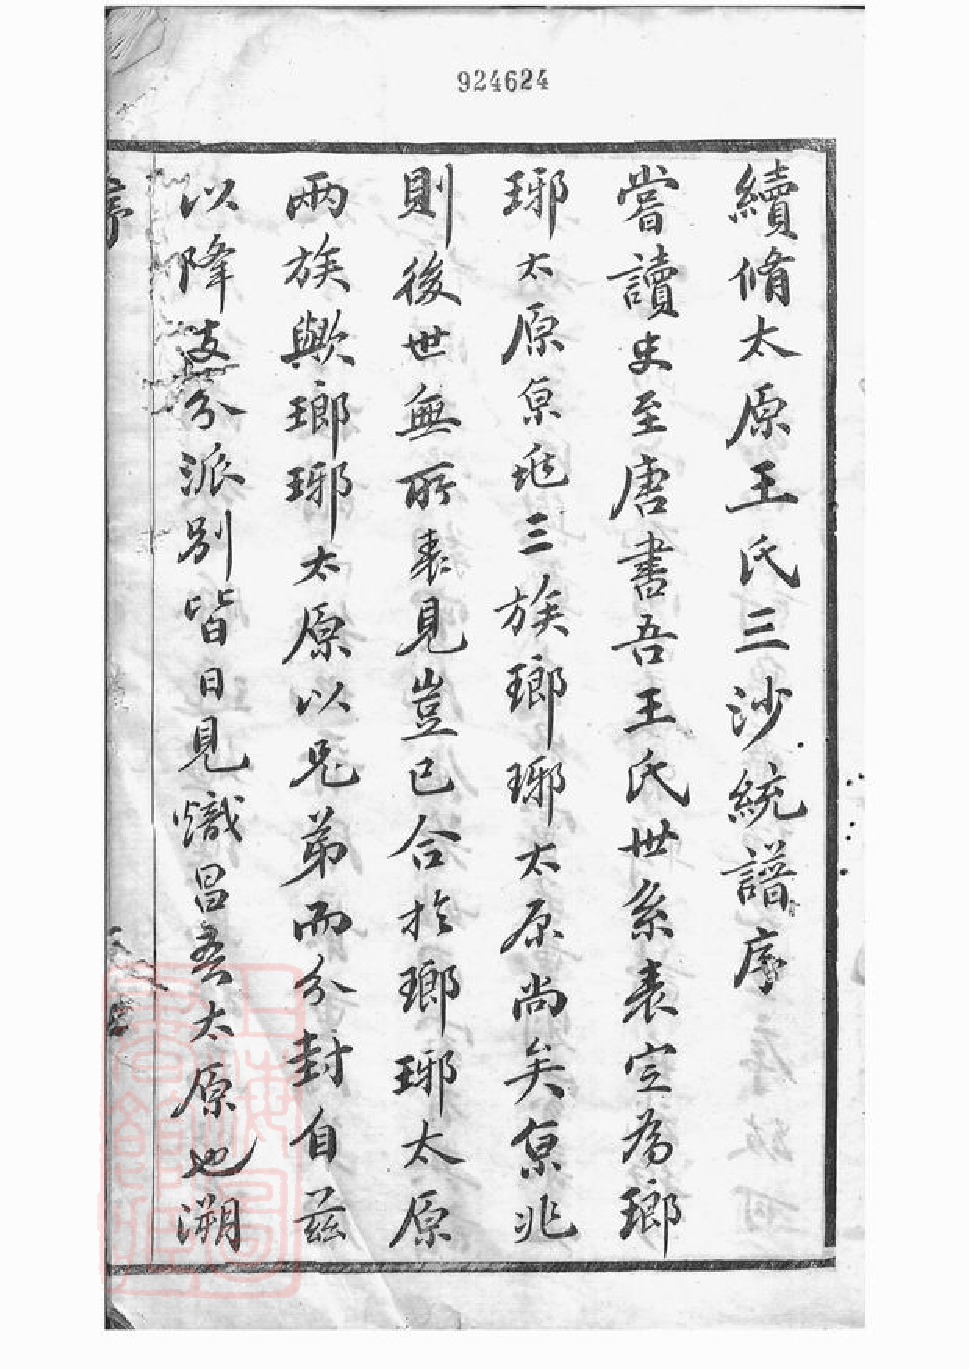 924624
續脩太原王氏三沙統譜序
嘗讀史至唐書吾王氏世系表定為瑯
琊太原京兆三族瑯琊太原尚矣京兆
則後世無所表見豈已合於瑯琊太原
兩族歟瑯琊太原以兄弟而分封自茲
以降支分派別皆日見熾昌吾太原也溯
序